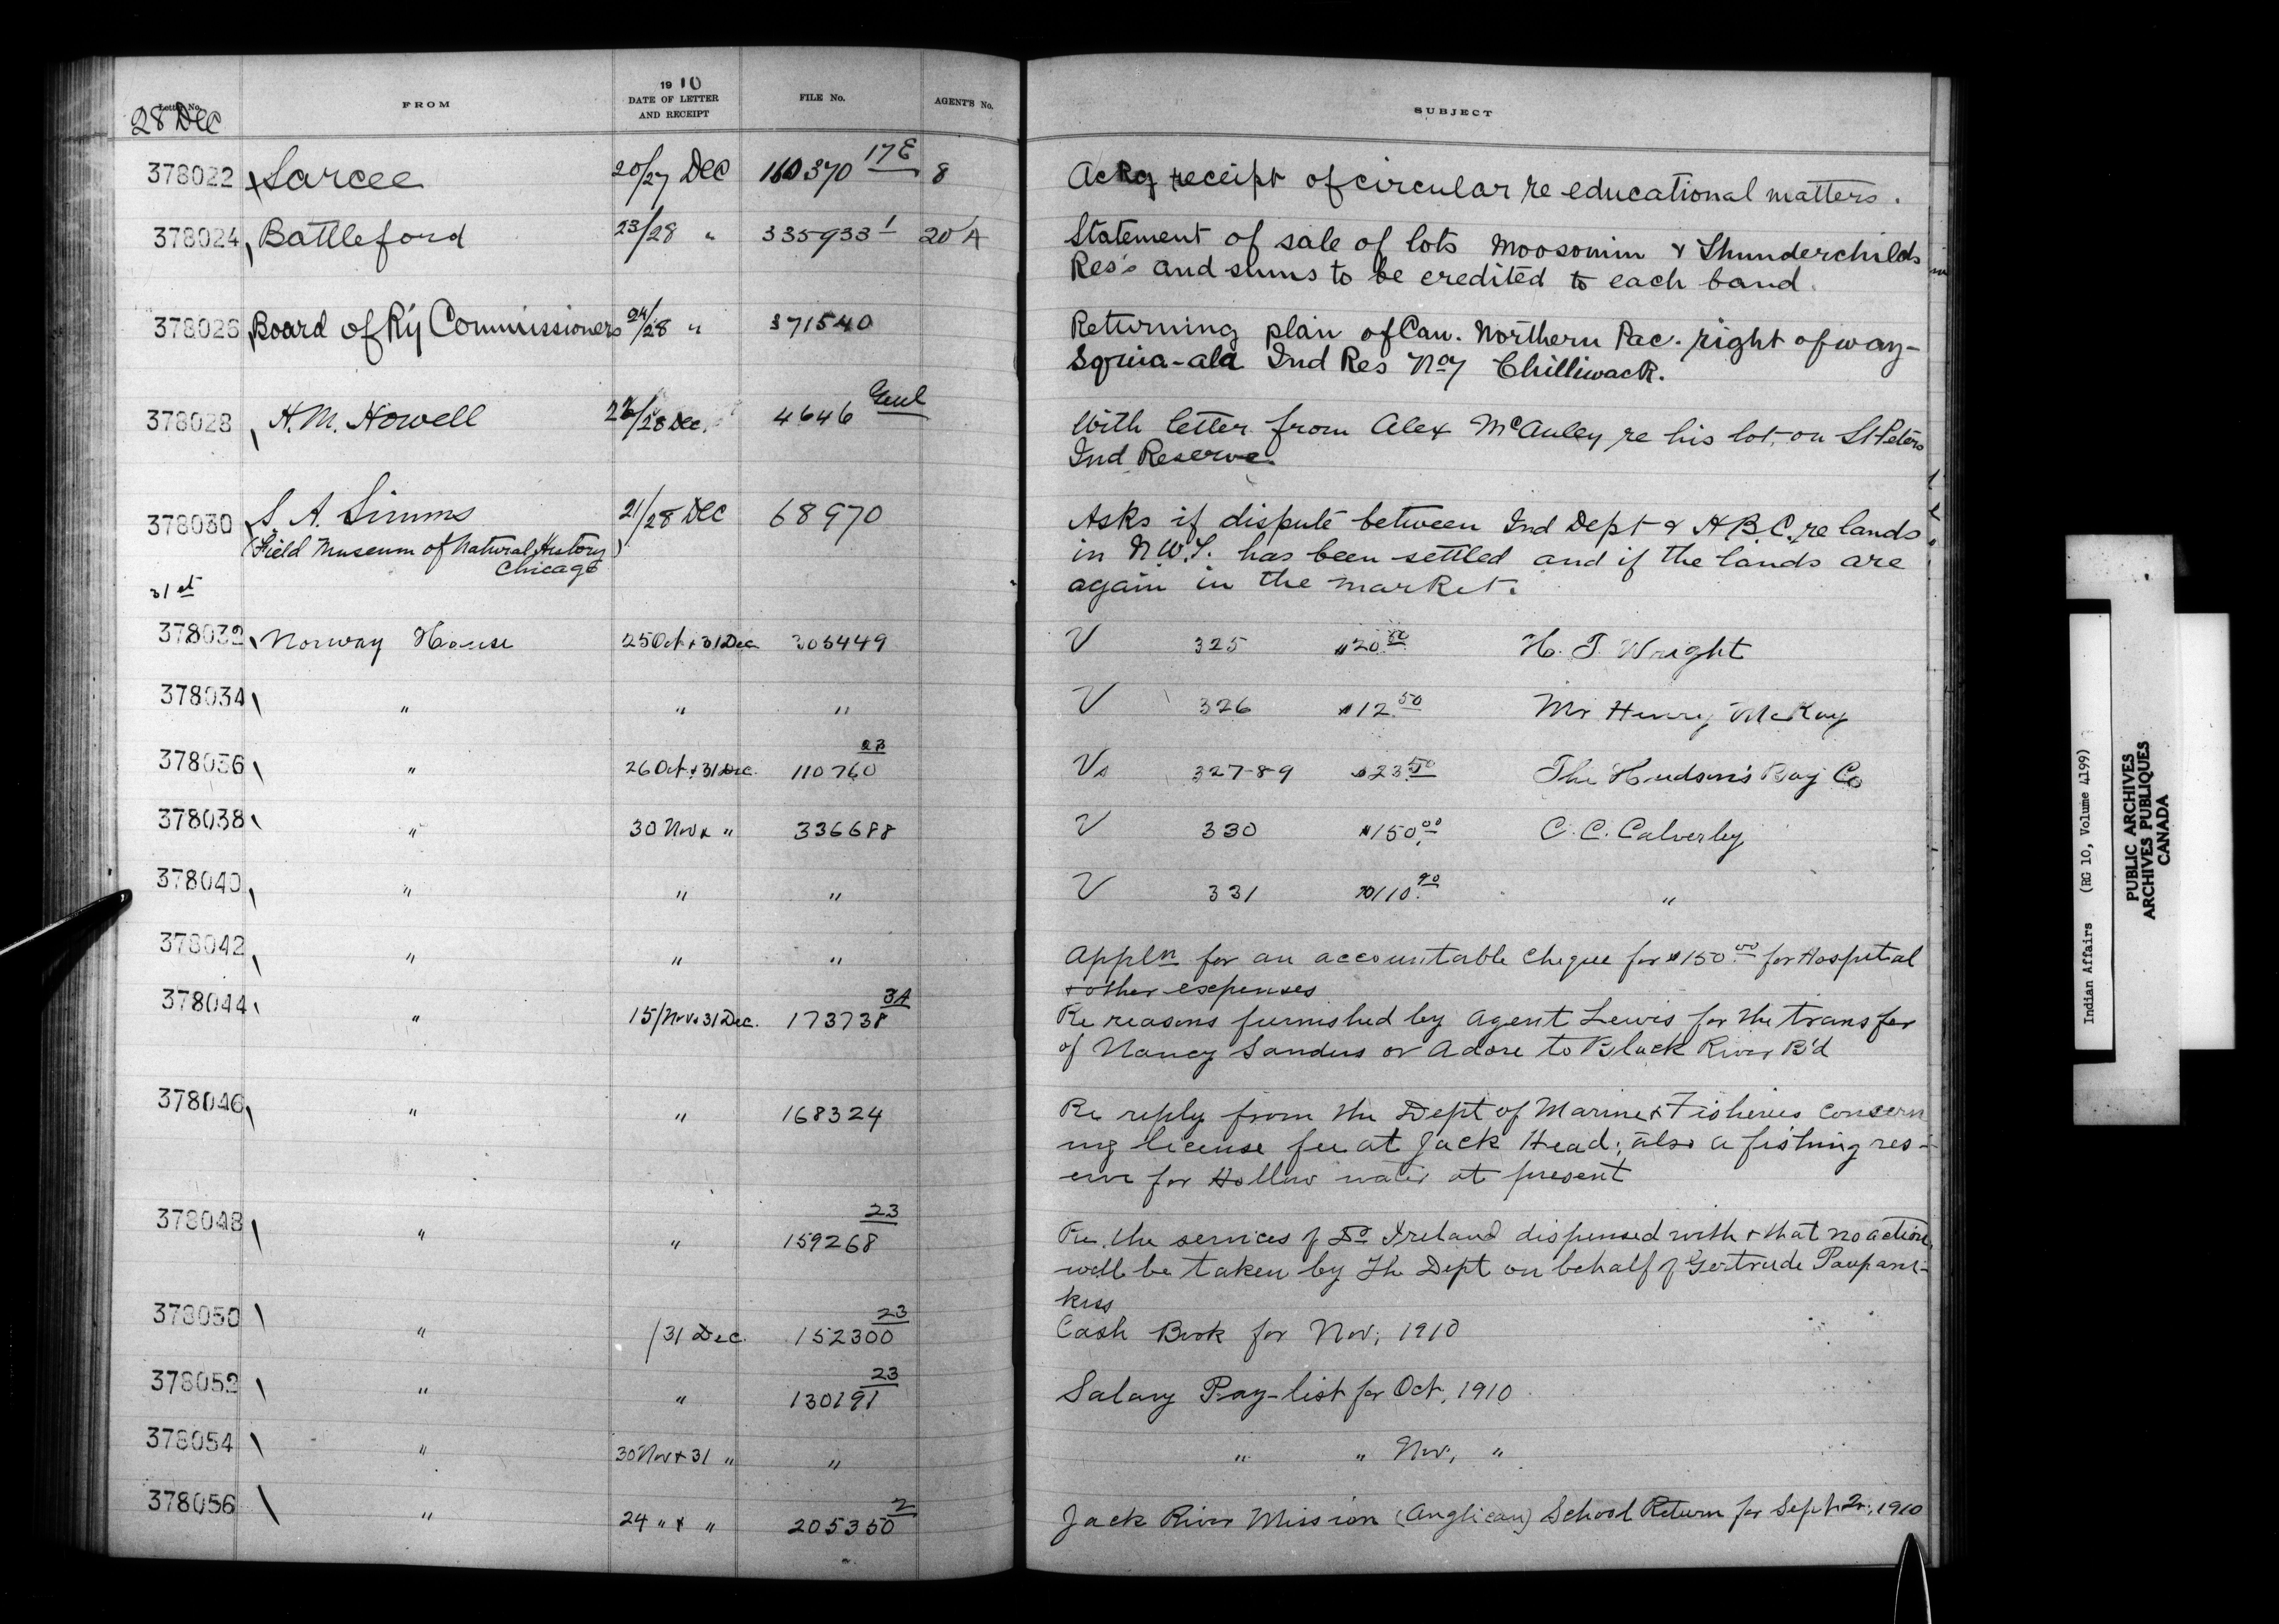 28 Dec
Letter No.
FROM
1910
DATE OF LETTER
AND RECEIPT
FILE No.
AGENT'S No.
SUBJECT
378022 Sarcee 20/27 Dec 160370 17E 8 Ackg receipt of circular re educational matters.
378024 Battleford 23/28 " 335933 1 20 A Statement of sale of lots Moosomin & Thunderchilds
Res's and sums to be credited to each band.
378026 Board of Ry Commissioners 24/28 " 371540 Returning plan of Can. Northern Pac. right of way -
Squia-ala Ind Res No 7 Chilliwack.
378028 H. M. Howell 28 Dec. 4646 Genl With letter from Alex McAuley re his lot on St Peters
Ind Reserve
378030 S. A. Simms 21/28 Dec 68970 Asks if dispute between Ind Dept & H.B.C. re lands
(Field Museum of Natural History) in N.W.T. has been settled and if the lands are
Chicago again in the market.
31st
378032 Norway House 25 Oct & 31 Dec 305449 V 325 $20.00 H. T. Wright
378034 " " " V 326 $12.50 Mr Henry McKay
378036 " 26 Oct & 31 Dec. 110760 23 Vs 327-8-9 $23.50 The Hudson's Bay Co
378038 " 30 Nov & " 336688 V 330 $150.00 C. C. Calverley
378040 " " " V 331 $110.90 "
378042 " " " Appln for an accountable cheque for $150.00 for Hospital
& other expenses
378044 " 15/Nov & 31 Dec. 173738 3A Re reasons furnished by Agent Lewis for the transfer
of Nancy Sandus or Adore to Black River B'd
378046 " " 168324 Re reply from the Dept of Marine & Fisheries concern
ing license fee at Jack Head; also a fishing res-
erve for Hollow water at present
378048 " " 159268 23 Re. the services of Dr Ireland dispensed with & that no action
will be taken by the Dept on behalf of Gertrude Paupana-
kiss
378050 " /31 Dec. 152300 23 Cash Book for Nov, 1910
378052 " " 130191 23 Salary Pay-list for Oct, 1910
378054 " 30 Nov & 31 " " " " Nov, "
378056 " 24 " & " 205350 2 Jack River Mission (Anglican) School Return for Sept. Qr., 1910
Indian Affairs (RG 10, Volume 4199)
PUBLIC ARCHIVES
ARCHIVES PUBLIQUES
CANADA